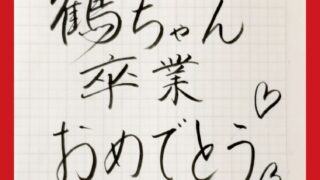 鶴ちゃん
卒業
おめでとう♡